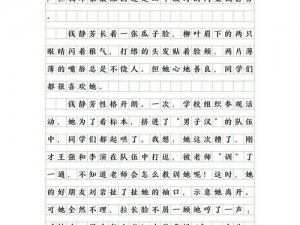 钱静芳长着一张瓜子脸，柳叶眉下的两只
眼睛闪着稚气，打绺的头发贴着脸颊，两片薄
薄的嘴唇总是不饶人。但她心地善良，同学们
都很喜欢她。
钱静芳性格开朗。一次，学校组织参观活
动，她为了看标本，挤进了“男子汉”的队伍
中，同学们都起哄了。我想：她这次糟了，刚
才王强和李演在队伍中打逗，被老师“训”了
一通，不知道老师会怎么教训她呢！我，她的
的好朋友刘岩扯了扯她的袖口，示意她离开。
可她全然不理，拉长脸不屑一顾地哼了一声：